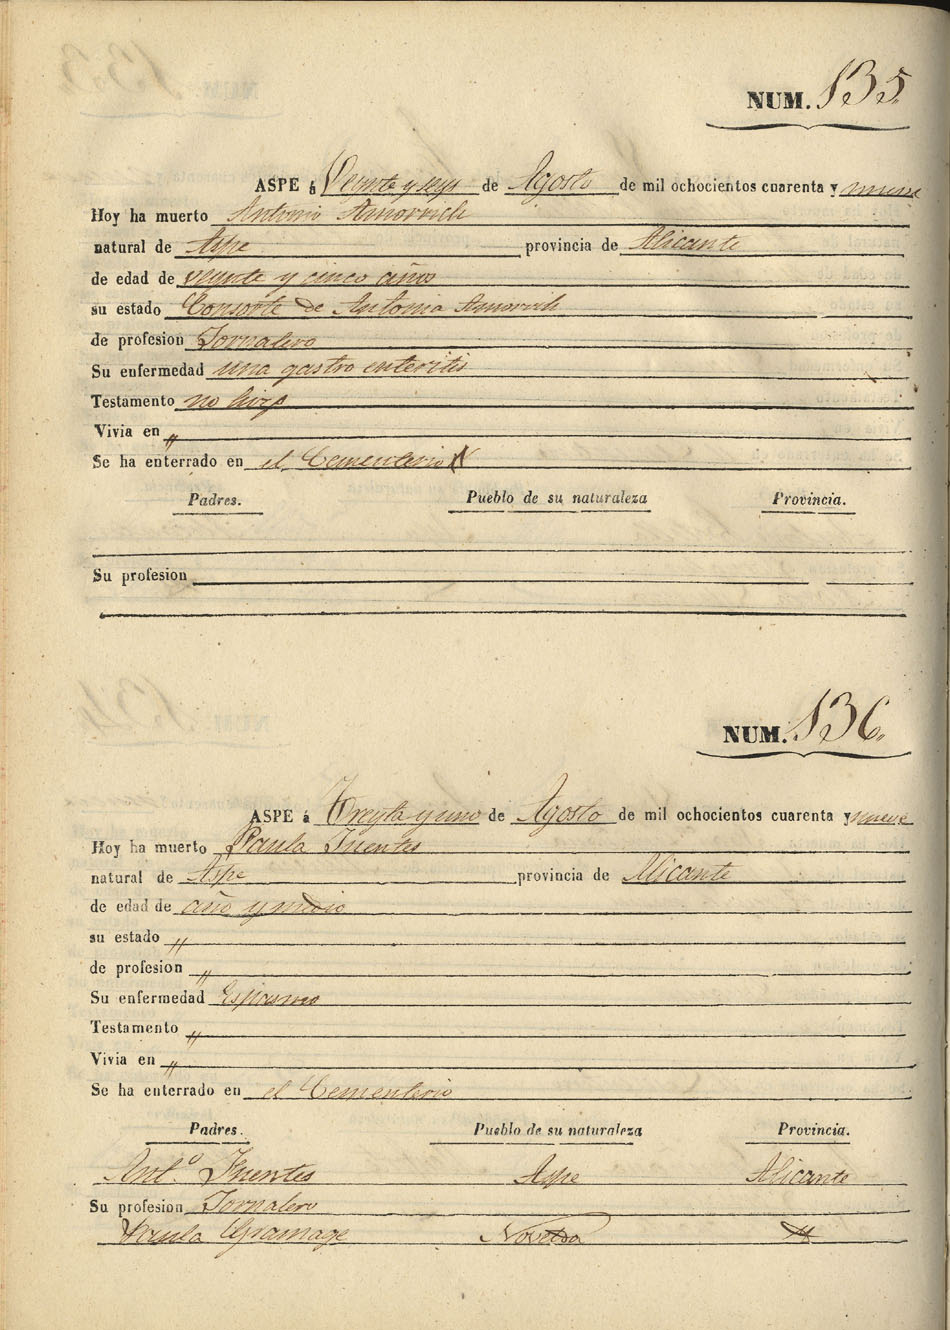 NUM. 135.
ASPE á Veynte y seys de Agosto de mil ochocientos cuarenta y nueve
Hoy ha muerto Antonio Amorrich
natural de Aspe provincia de Alicante
de edad de veynte y cinco años
su estado Consorte de Antonia Amorrich
de profesion Jornalero
Su enfermedad una gastro enteritis
Testamento no hizo
Vivia en "
Se ha enterrado en el Cementerio
Padres. Pueblo de su naturaleza Provincia.
Su profesion
NUM. 136.
ASPE á Treyta y uno de Agosto de mil ochocientos cuarenta y nueve
Hoy ha muerto Paula Fuentes
natural de Aspe provincia de Alicante
de edad de año y medio
su estado "
de profesion "
Su enfermedad Espasmo
Testamento "
Vivia en "
Se ha enterrado en el Cementerio
Padres. Pueblo de su naturaleza Provincia.
Ant.º Fuentes Aspe Alicante
Su profesion Jornalero
Paula Gramage Novelda